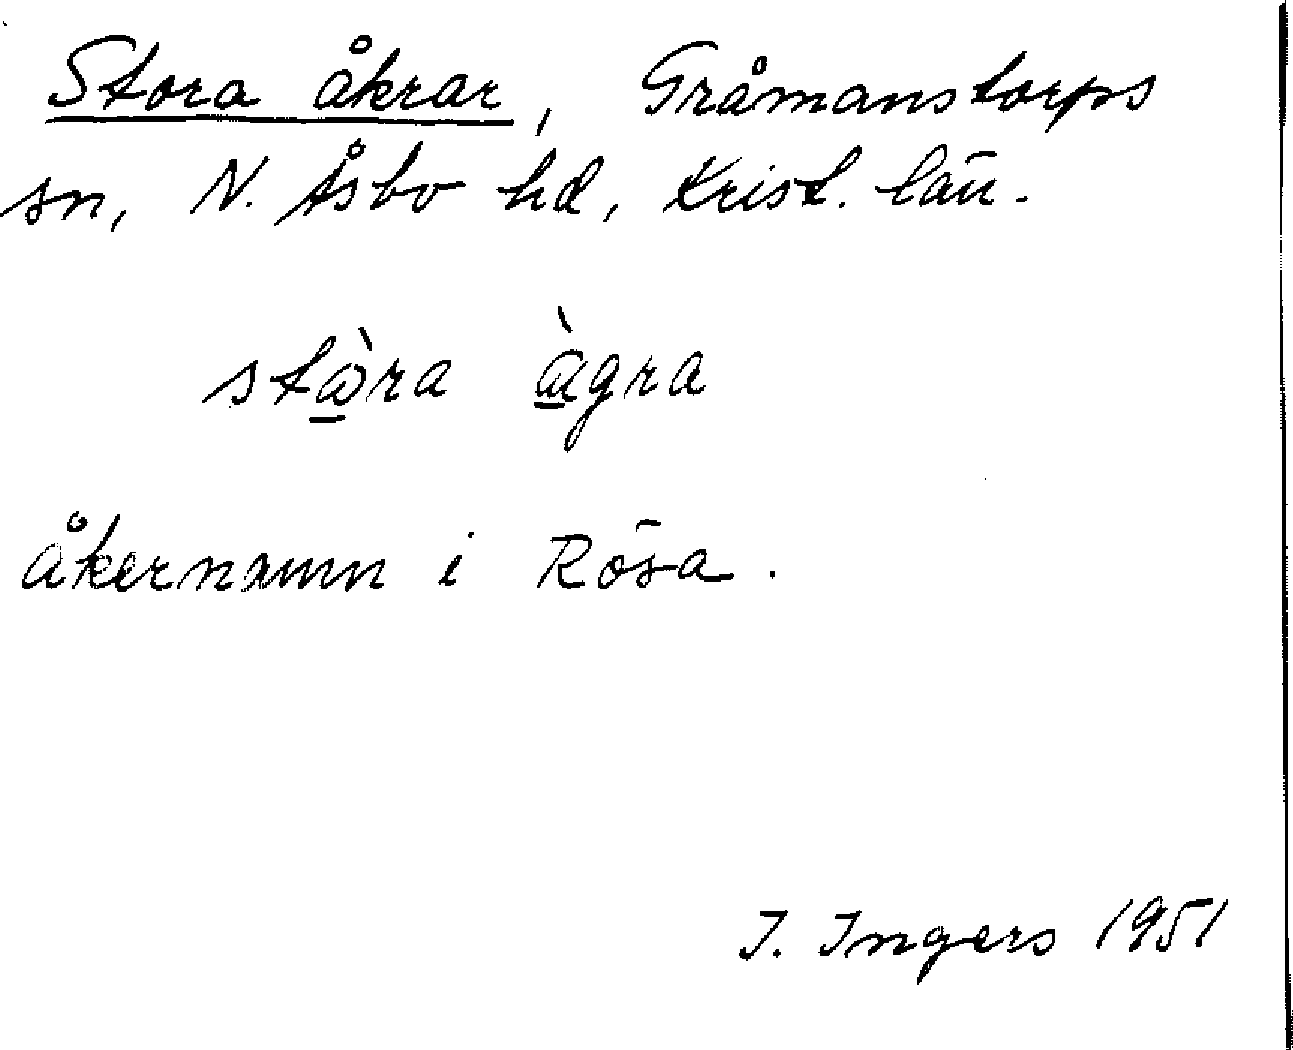 Stora åkrar, Gråmanstorps
sn, N. Åsbo hd, Krist. län.
stὼ̱ra à̱gra
åkernamn i Rösa.
I. Ingers 1951